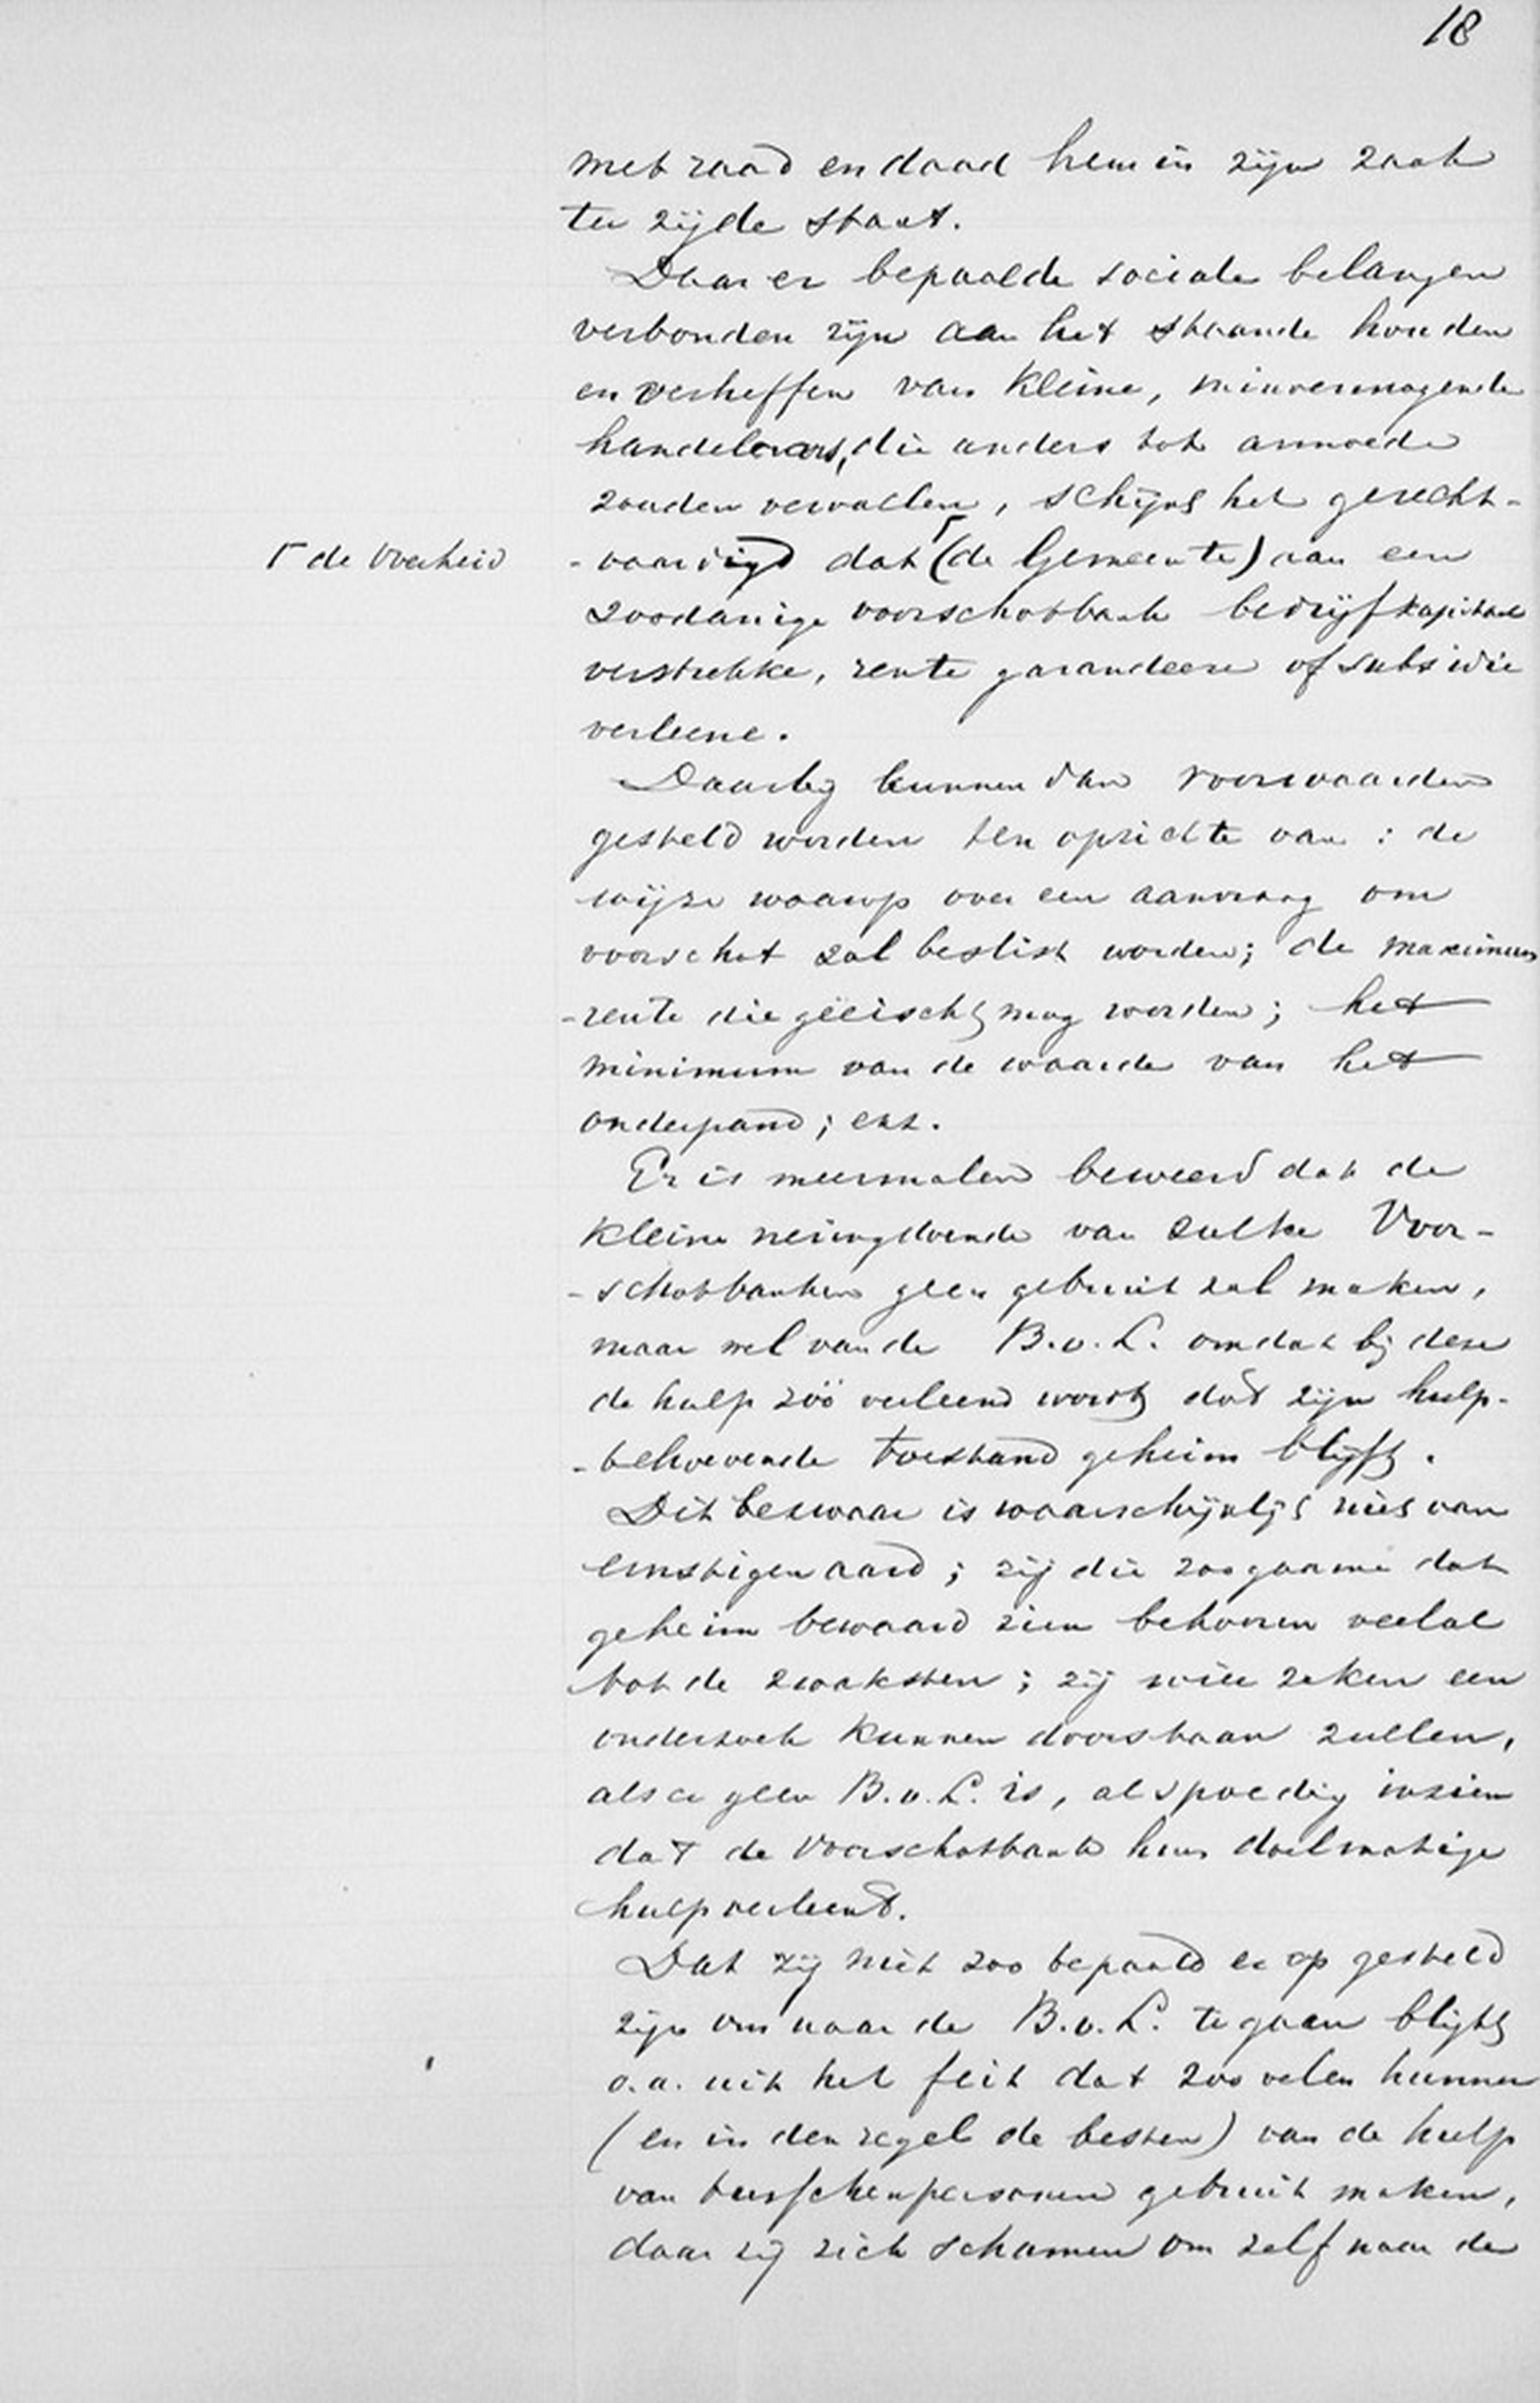 18
met raad en daad hem in zijn zaak
ter zijde staat.
Daar er bepaalde sociale belangen
verbonden zijn aan het staande houden
en verheffen van kleine, minvermogende
handelaars, die anders tot armoede
zouden vervallen, schijnt het gerecht-
┌ de Overheid
-vaardigd dat ┌ (de Gemeente) aan een
zoodanige voorschotbank bedrijfkapitaal
verstrekke, rente garandeere of subsidie
verleene.
Daarbij kunnen dan voorwaarden
gesteld worden ten opzichte van : de
wijze waarop over een aanvraag om
voorschot zal beslist worden; de maximum
-rente die geëischt mag worden; het
minimum van de waarde van het
onderpand; enz.
Er is meermalen beweerd dat de
kleine neringdoende van zulke Voor-
-schotbanken geen gebruik zal maken,
maar wel van de B.v.L. omdat bij deze
de hulp zóó verleend wordt dat zijn hulp-
-behoevende toestand geheim blijft.
Dit bezwaar is waarschijnlijk niet van
ernstigen aard; zij die zoo gaarne dat
geheim bewaard zien behooren veelal
tot de zwaksten; zij wier zaken een
onderzoek kunnen doorstaan zullen,
als er geen B.v.L. is, al spoedig inzien
dat de Voorschotbank hun doelmatige
hulp verleent.
Dat zij niet zoo bepaald er op gesteld
zijn om naar de B.v.L. te gaan blijkt
o.a. uit het feit dat zoo velen hunner
(en in den regel de besten) van de hulp
van tusschenpersonen gebruik maken,
daar zij zich schamen om zelf naar de